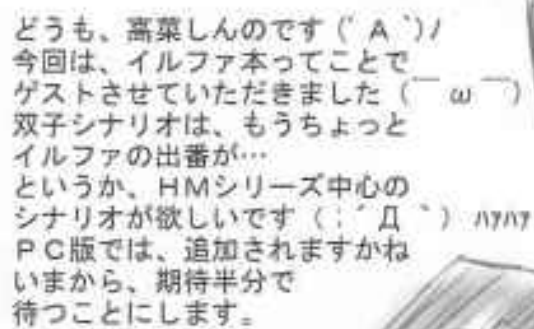 どうも、高菜しんのです（´Ａ｀）ﾉ
今回は、イルファ本ってことで
ゲストさせていただきました（￣ω￣）
双子シナリオは、もうちょっと
イルファの出番が…
というか、ＨＭシリーズ中心の
シナリオが欲しいです（；´Д｀）ﾊｧﾊｧ
ＰＣ版では、追加されますかね
いまから、期待半分で
待つことにします。